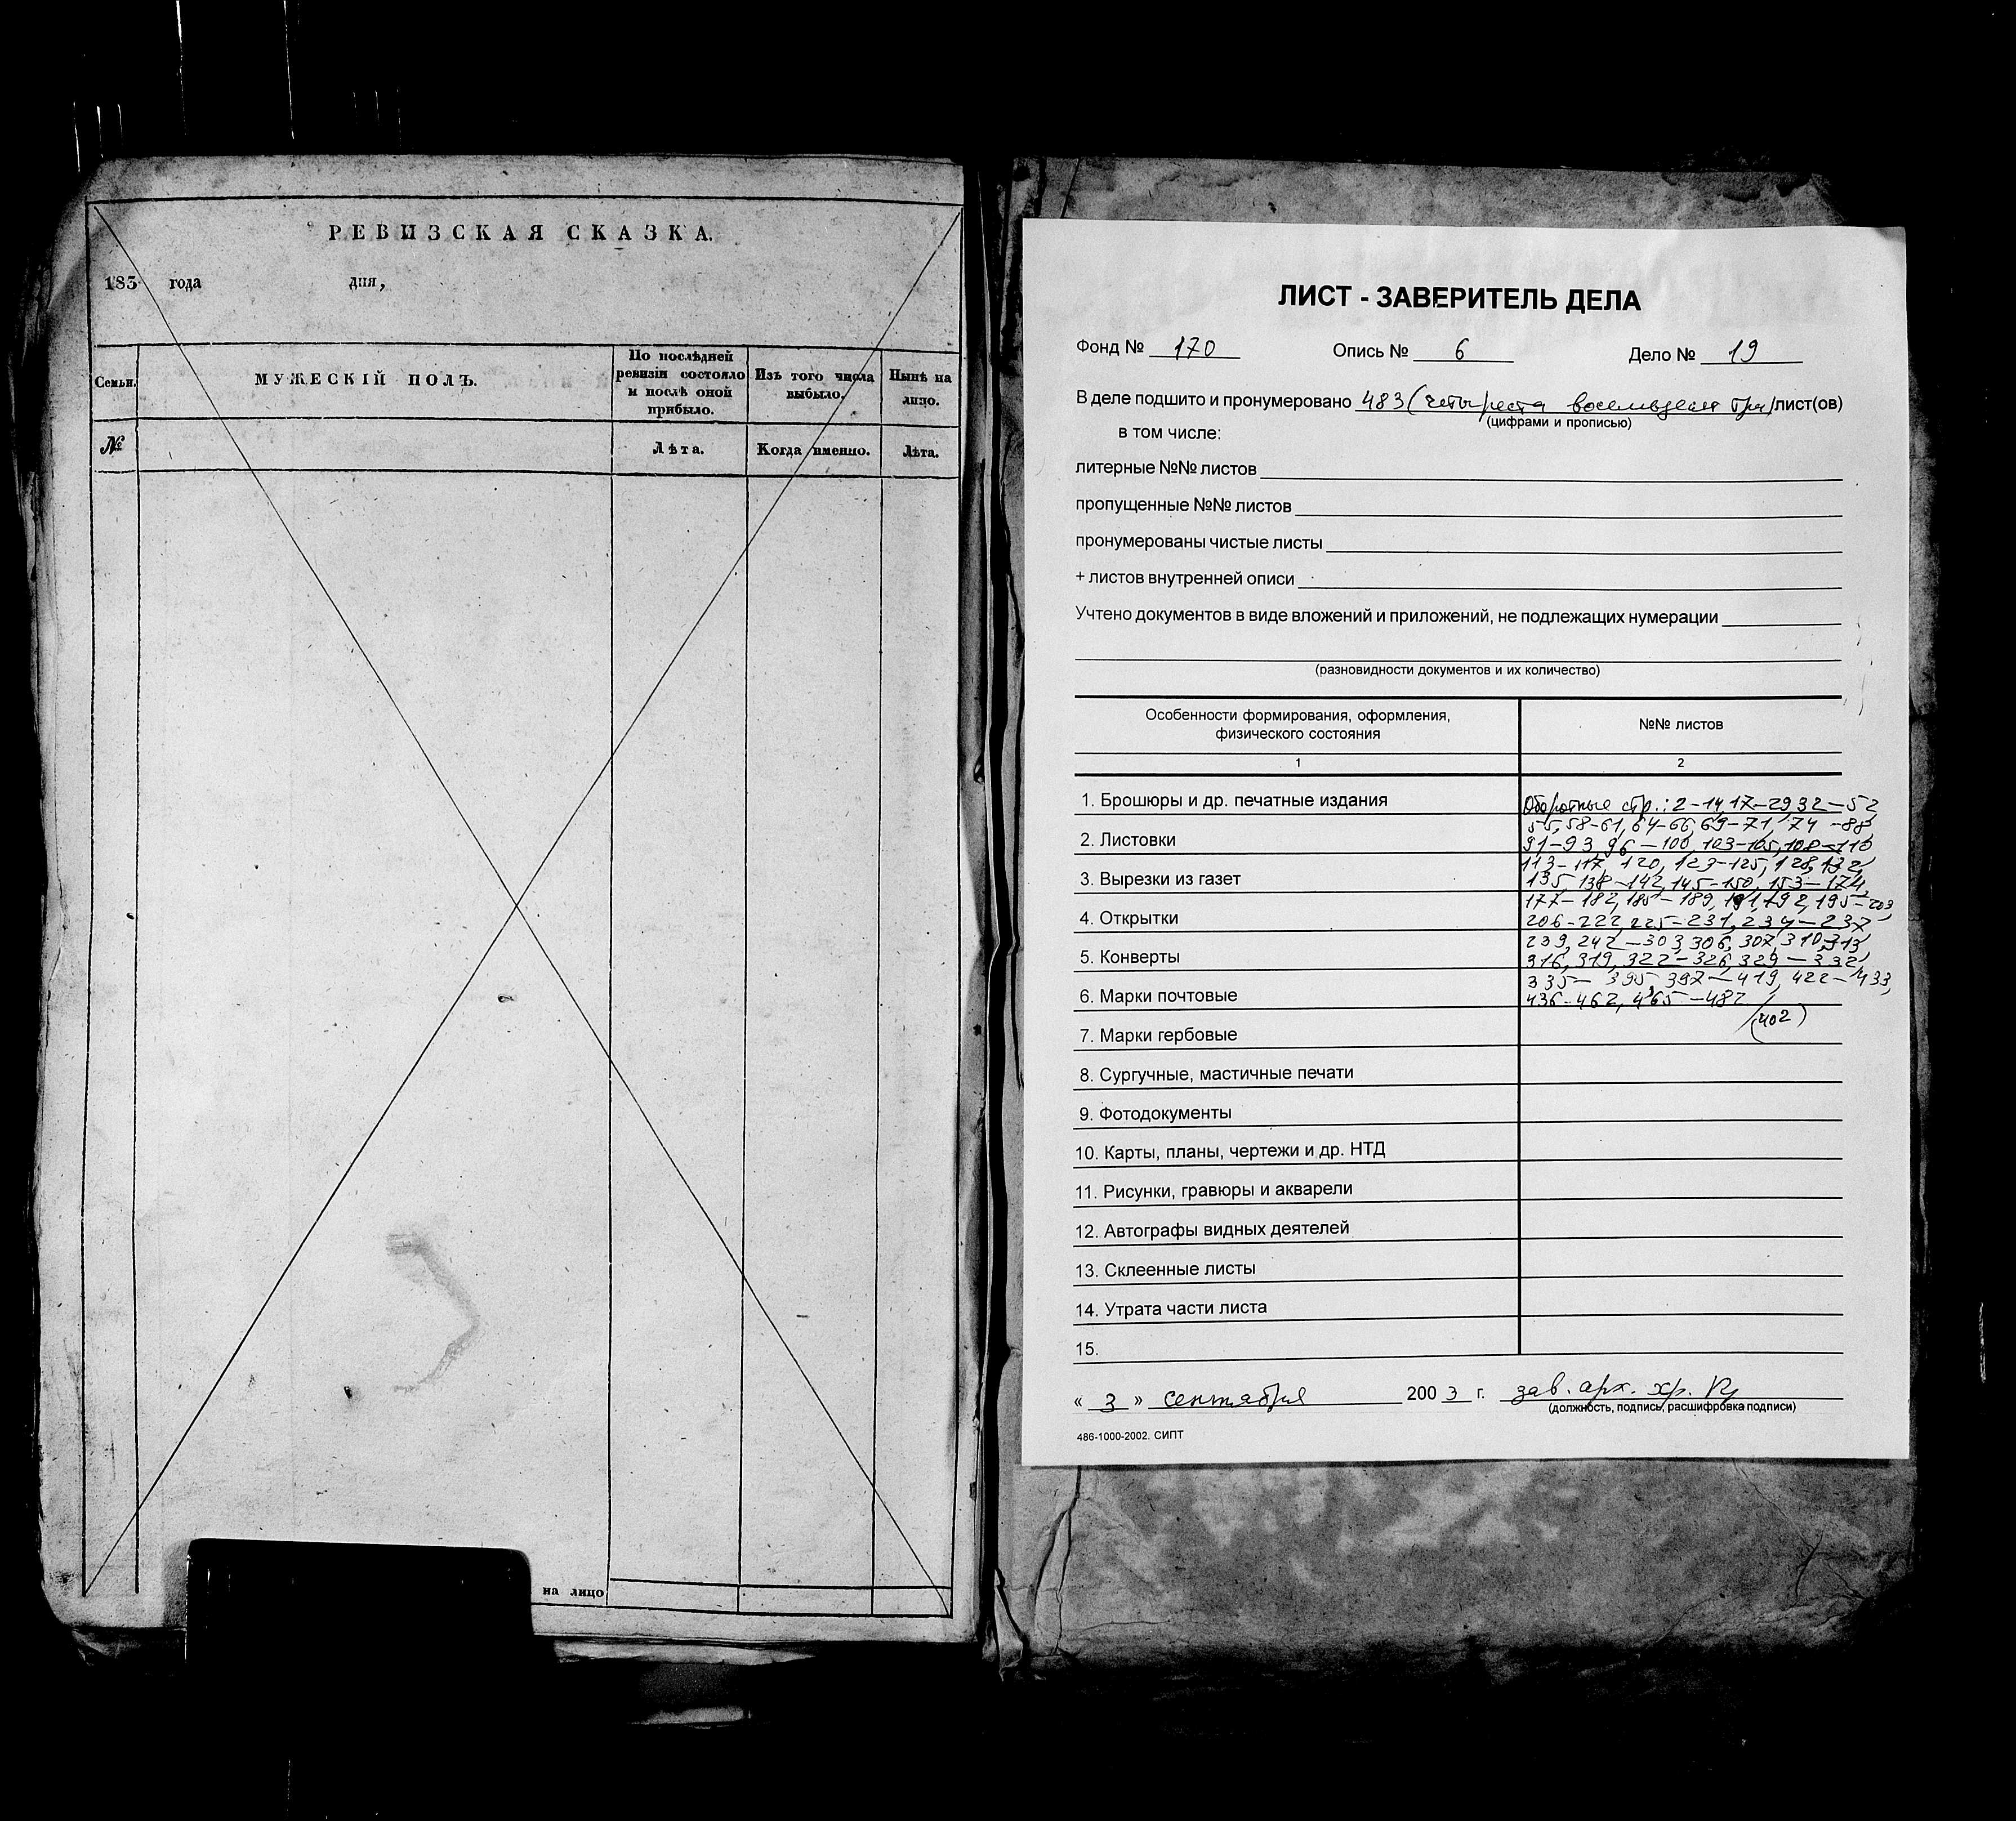 РЕВИЗСКАЯ СКАЗКА.
183 года дня,
Семьи.
МУЖЕСКІЙ ПОЛЪ.
По послѣдней
ревизіи состояло
и послѣ оной
прибыло.
Изъ того числа
выбыло.
Нынѣ на
лицо.
№
Лѣта.
Когда именно.
Лѣта.
на лицо
ЛИСТ - ЗАВЕРИТЕЛЬ ДЕЛА
Фонд № 170 Опись № 6 Дело № 19
В деле подшито и пронумеровано 483 (четыреста восемьдесят три) лист(ов)
(цифрами и прописью)
в том числе:
литерные №№ листов
пропущенные №№ листов
пронумерованы чистые листы
+ листов внутренней описи
Учтено документов в виде вложений и приложений, не подлежащих нумерации
(разновидности документов и их количество)
Особенности формирования, оформления,
физического состояния
№№ листов
1
2
1. Брошюры и др. печатные издания
2. Листовки
3. Вырезки из газет
4. Открытки
5. Конверты
6. Марки почтовые
7. Марки гербовые
8. Сургучные, мастичные печати
9. Фотодокументы
10. Карты, планы, чертежи и др. НТД
11. Рисунки, гравюры и акварели
12. Автографы видных деятелей
13. Склеенные листы
14. Утрата части листа
15.
Оборотные стр.: 2-14, 17-29, 32-52,
55, 58-61, 64-66, 69-71, 74-88,
91-93, 96-100, 103-105, 108-110
113-117, 120, 123-125, 128, 132,
135, 138-142, 145-150, 153-174,
177-182, 185-189, 191, 192, 195-203,
206-222, 225-231, 234-237
239, 242-303, 306, 307, 310, 313
316, 319, 322-326, 329-332,
335-395, 397-419, 422-433,
436-462, 465-482
(402)
« 3 » сентября 2003 г. зав. арх. хр.
(должность, подпись, расшифровка подписи)
486-1000-2002. СИПТ